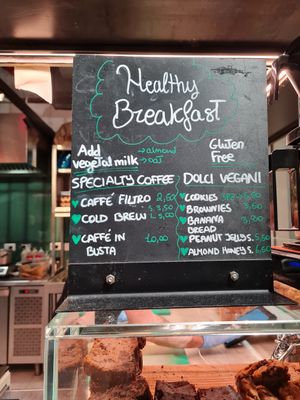 Healthy
Breakfast
Add → almond
vegetal milk → oat
Gluten
Free
SPECIALTY COFFEE
CAFFÉ FILTRO 2,50
S 3,50
COLD BREW L 5,00
CAFFÉ IN 10,00
BUSTA
DOLCI VEGANI
COOKIES
BROWNIES 3,50
BANANA 3,80
BREAD
PEANUT JELLY S. 5,50
ALMOND HONEY S. 6,50